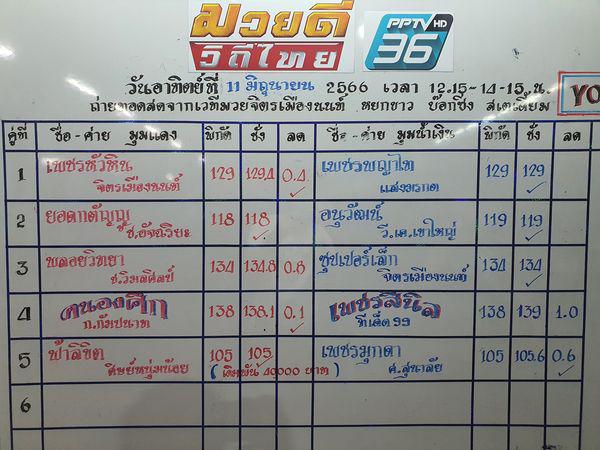 มวยดี
วิถีไทย
PPTV HD
36
วันอาทิตย์ที่ 11 มิถุนายน 2566 เวลา 12.15-14-15 น.
ถ่ายทอดสดจากเวทีมวยจิตรเมืองนนท์ หยกขาว บ๊อกซิ่ง สเตเดี้ยม
YO
คู่ที่ ชื่อ-ค่าย มุมแดง พิกัด ชั่ง ลด ชื่อ-ค่าย มุมน้ำเงิน พิกัด ชั่ง ลด
1 เพชรหัวหิน 129 129.4 0.4 เพชรพญาไท 129 129
จิตรเมืองนนท์ แสงมรกต
2 ยอดกตัญญู 118 118 อนุวัฒน์ 119 119
ช.อัจฉริยะ วี.เค.เขาใหญ่
3 พลอยวิทยา 134 134.8 0.8 ซุปเปอร์เล็ก 134 134
ช.วิมลศิลป์ จิตรเมืองนนท์
4 คนองศึก 138 138.1 0.1 เพชรสีนิล 138 139 1.0
ก.กัมปนาท ทีเด็ด 99
5 ฟ้าลิขิต 105 105 เพชรมุกดา 105 105.6 0.6
ศิษย์หนุ่มน้อย (เดิมพัน 40000 บาท) ศ.สุนาลัย
6